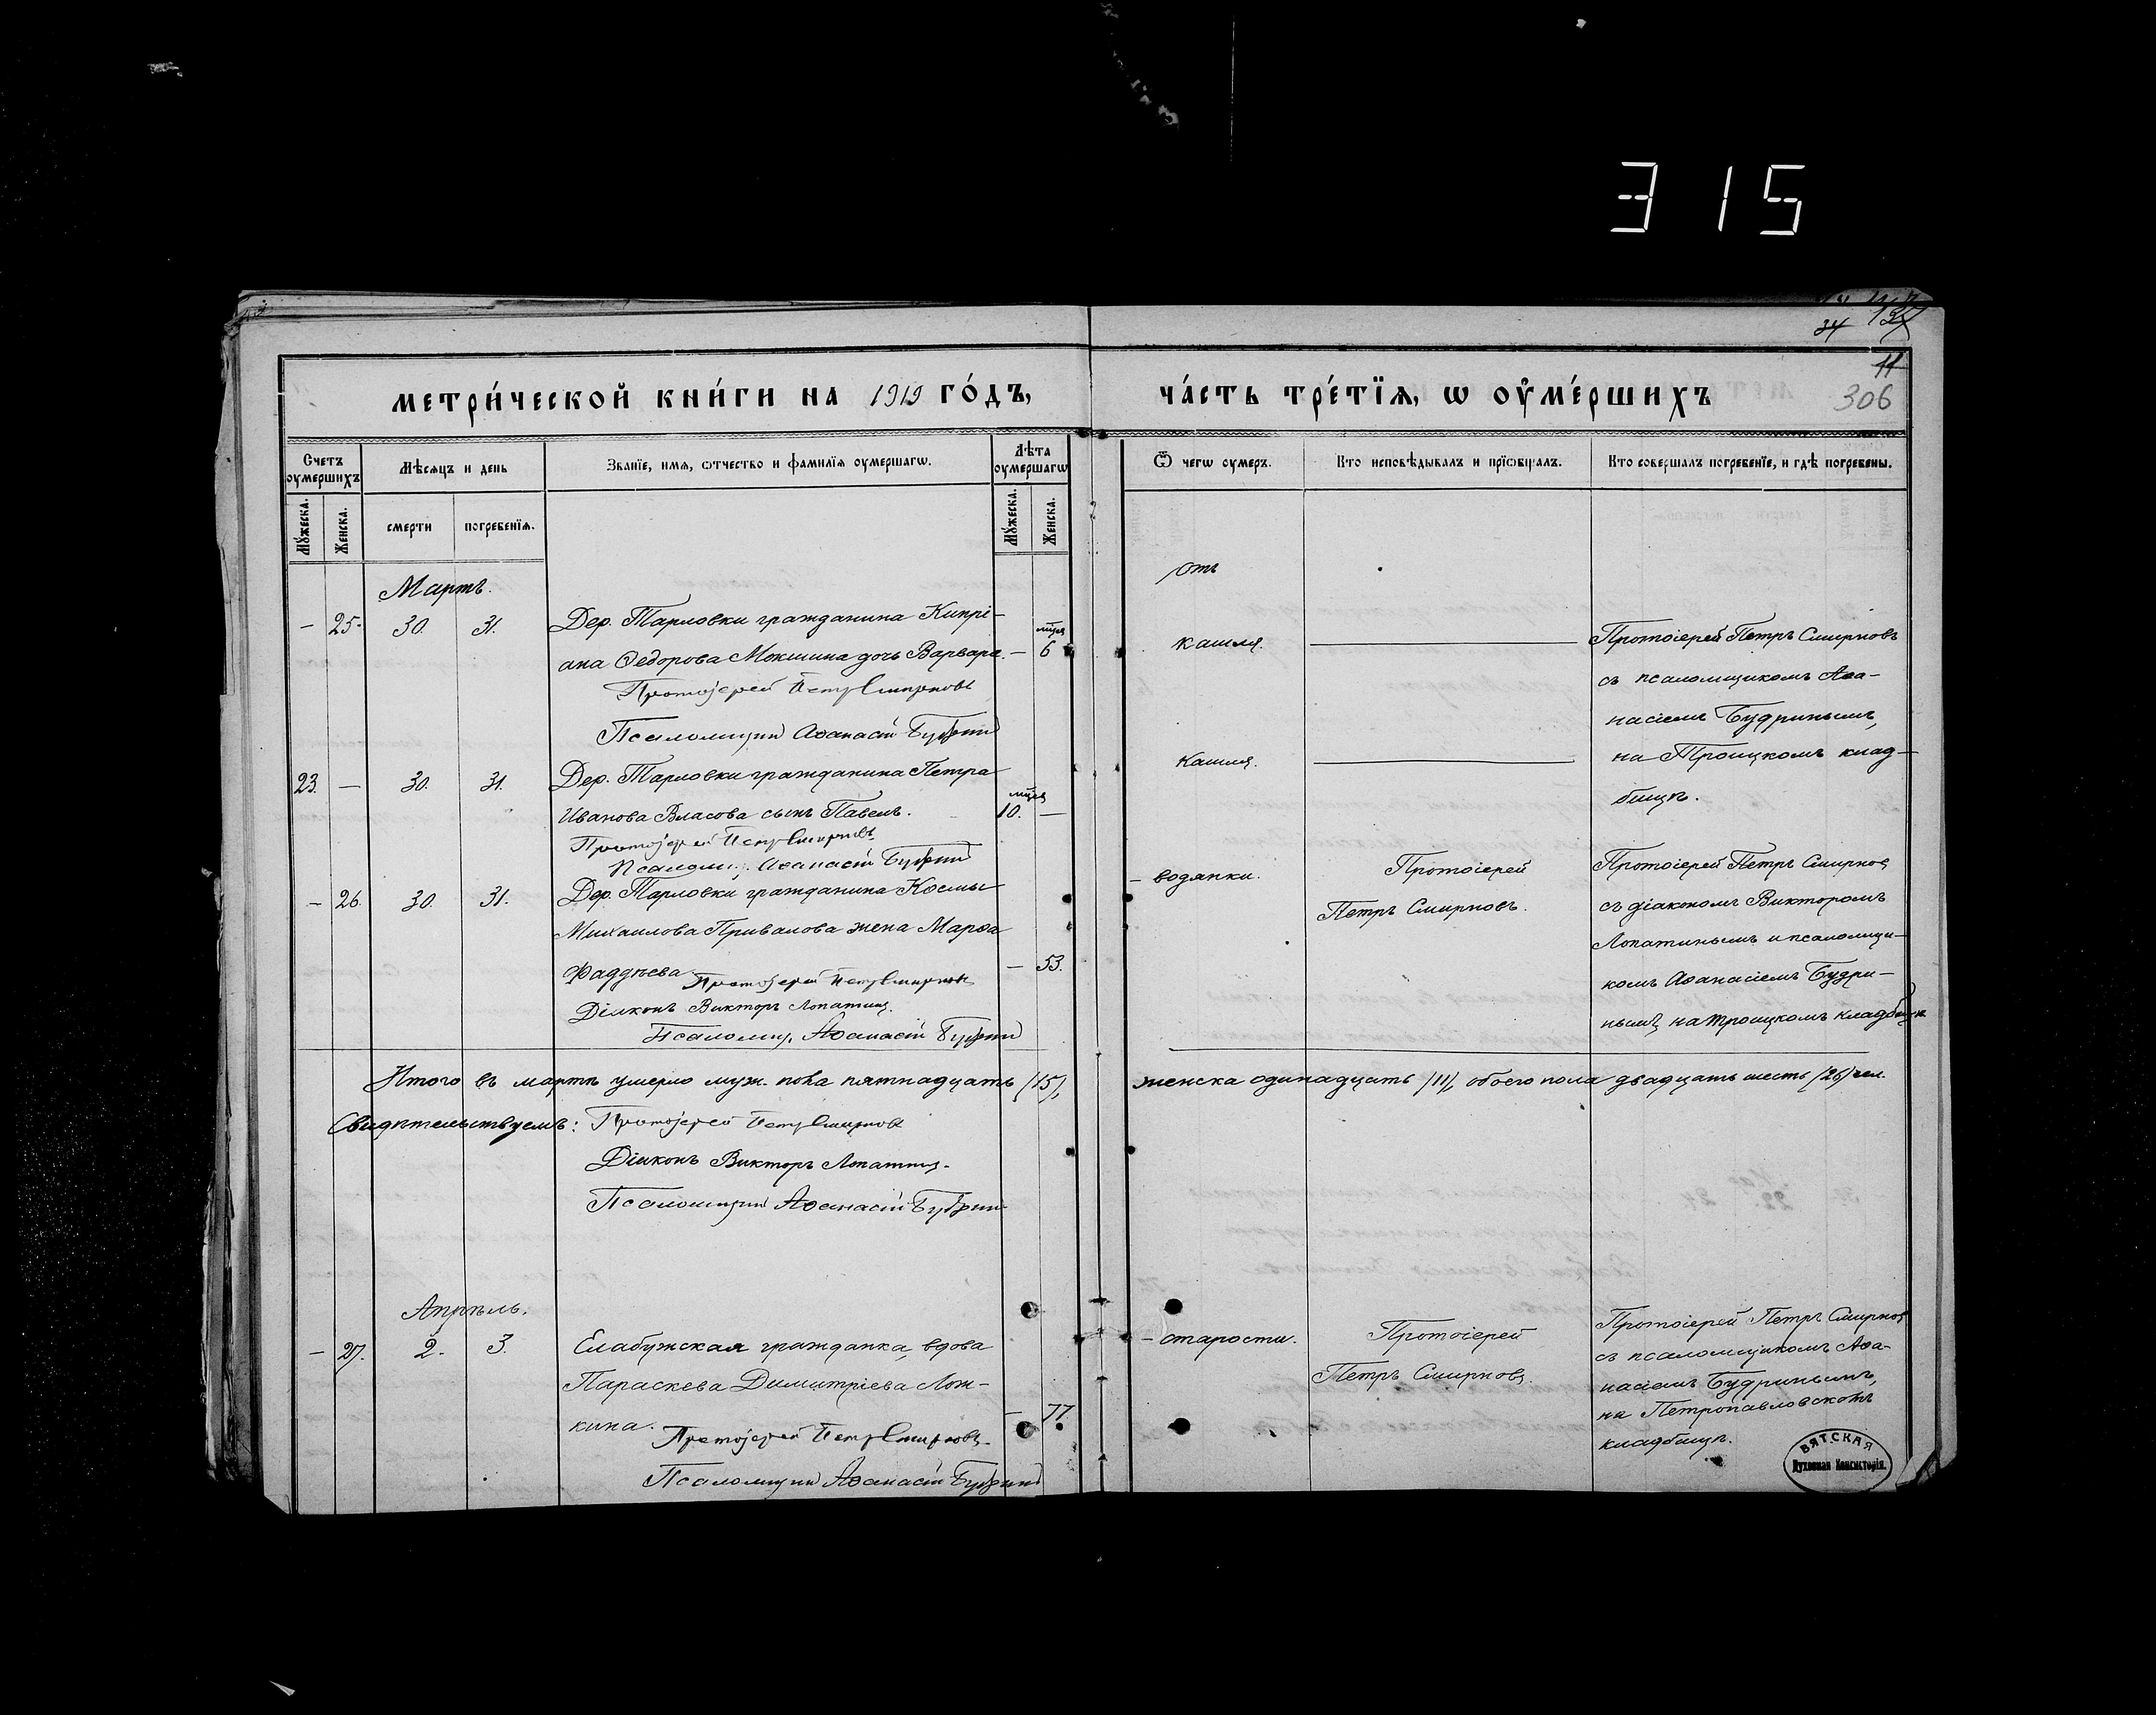 315
34 137
11
306
МЕТРИ́ЧЕСКОЙ КНИ́ГИ НА 1919 ГО́ДЪ,
ЧА́СТЬ ТРЕ́ТЇѦ, Ѡ ОУ҆МЕ́РШИХЪ
Счетъ оумершихъ
Мѣсѧцъ и день
Званїе, имѧ, ѿчество и фамилїѧ оумершагѡ.
Лѣта оумершагѡ
Ѿ чегѡ оумеръ.
Кто исповѣдывалъ и прїѡбщалъ.
Кто совершалъ погребенїе, и гдѣ погребены.
Мꙋжеска.
Женска.
смерти
погребенїѧ.
Мꙋжеска.
Женска.
Мартъ.
отъ
— 25. 30. 31. Дер. Тарловки гражданина Кипрі-
ана Ѳедорова Мокшина дочь Варвара. — 6 мѣся
Протоіерей Петръ Смирновъ
Псаломщикъ Аѳанасій Будринъ
кашля.
Протоіерей Петръ Смирновъ
съ псаломщикомъ Аѳа-
насіемъ Будринымъ,
на Троицкомъ клад-
бищѣ.
23. — 30. 31. Дер. Тарловки гражданина Петра
Иванова Власова сынъ Павелъ. 10. мѣся —
Протоіерей Петръ Смирновъ
Псаломщ. Аѳанасій Будринъ
кашля.
— 26. 30. 31. Дер. Тарловки гражданина Космы
Михаилова Привалова жена Марѳа
Фаддѣева — 53.
Протоіерей Петръ Смирновъ
Діаконъ Викторъ Лопатинъ.
Псаломщ. Аѳанасій Будринъ
— водянки.
Протоіерей
Петръ Смирновъ.
Протоіерей Петръ Смирновъ
съ діакономъ Викторомъ
Лопатинымъ и псаломщи-
комъ Аѳанасіемъ Будри-
нымъ, на Троицкомъ кладбищѣ.
Итого въ мартѣ умерло муж. пола пятнадцать /15/, женска одинадцать /11/, обоего пола двадцать шесть /26/ чел.
Свидѣтельствуемъ: Протоіерей Петръ Смирновъ
Діаконъ Викторъ Лопатинъ.
Псаломщикъ Аѳанасій Будринъ
Апрѣль.
— 27. 2. 3. Елабужская гражданка, вдова
Параскева Димитріева Лож-
кина. — 77.
Протоіерей Петръ Смирновъ.
Псаломщикъ Аѳанасій Будринъ
— старости.
Протоіерей
Петръ Смирновъ.
Протоіерей Петръ Смирновъ
съ псаломщикомъ Аѳа-
насіемъ Будринымъ,
на Петропавловскомъ
кладбищѣ.
ВЯТСКАЯ
Духовная Консисторія.